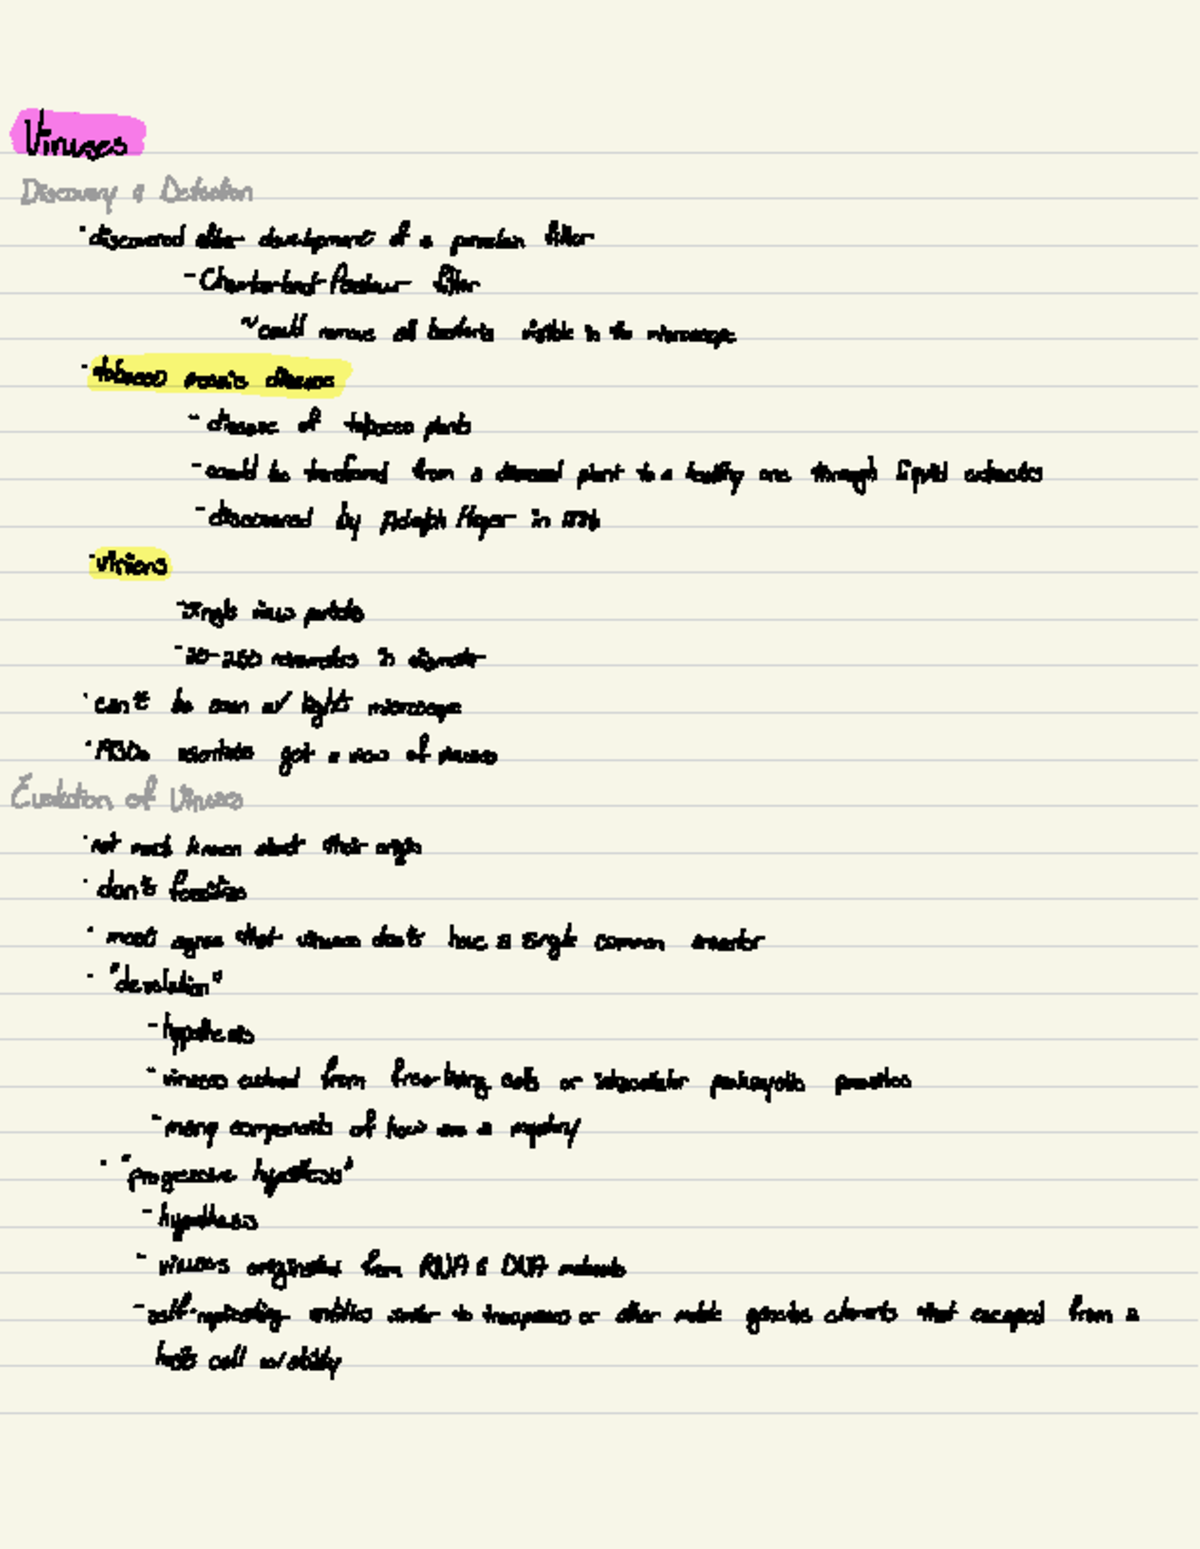 Viruses
Discovery & Detection
· discovered after development of a porcelain filter
- Chamberland-Pasteur filter
~ could remove all bacteria visible in the microscope
· tobacco mosaic disease
- disease of tobacco plants
- could be transferred from a diseased plant to a healthy one through liquid extracts
- discovered by Adolph Mayer in 1886
· virions
- single virus particle
- 20-250 nanometers in diameter
· can't be seen w/ light microscope
· 1930s scientists got a view of viruses
Evolution of Viruses
· not much known about their origin
· don't fossilize
· most agree that viruses don't have a single common ancestor
· "devolution"
- hypothesis
- viruses evolved from free-living cells or intracellular prokaryotic parasites
- many components of how are a mystery
· "progressive hypothesis"
- hypothesis
- viruses originated from RNA & DNA molecules
- self-replicating entities similar to or other mobile genetic elements that escaped from a
host cell w/ ability